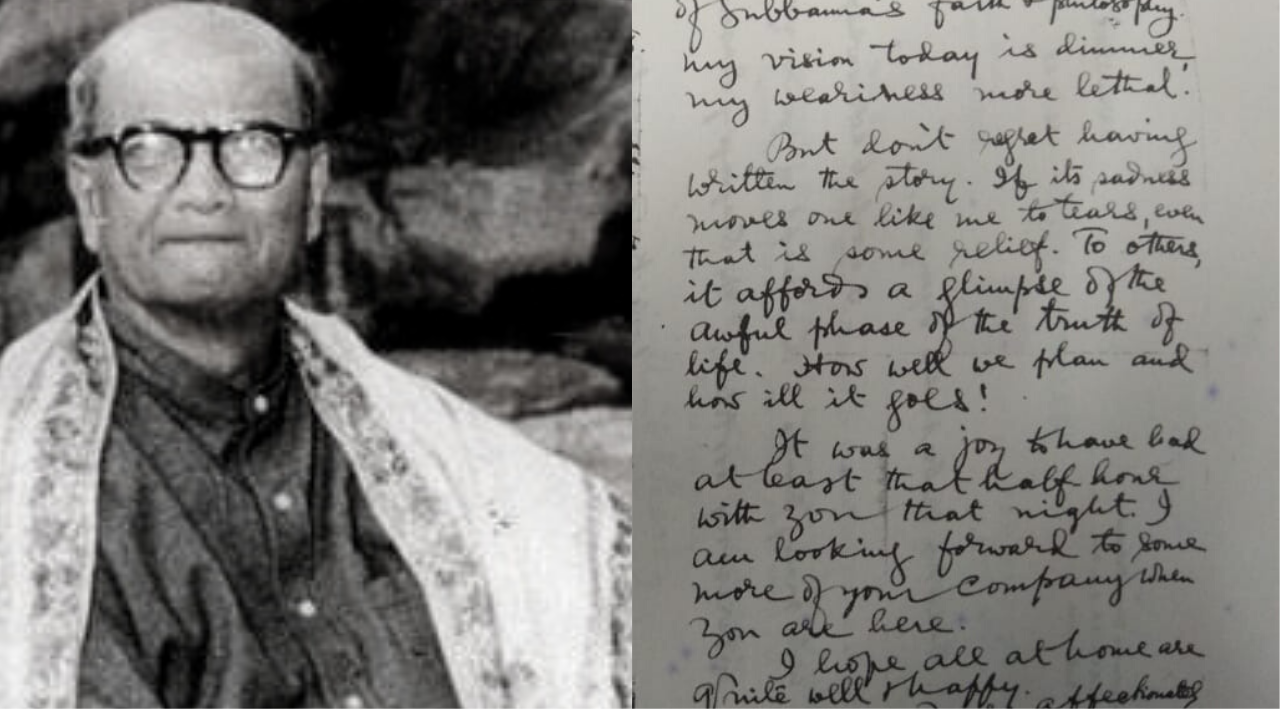 of Subbanna's faith & philosophy.
my vision today is dimmer,
my weariness more lethal.
But don't regret having
written the story. If its sadness
moves one like me to tears, even
that is some relief. To others,
it affords a glimpse of the
awful phase of the truth of
life. How well we plan and
how ill it goes!
It was a joy to have had
at least that half hour
with you that night. I
am looking forward to some
more of your company when
you are here.
I hope all at home are
quite well & happy.
affectionately